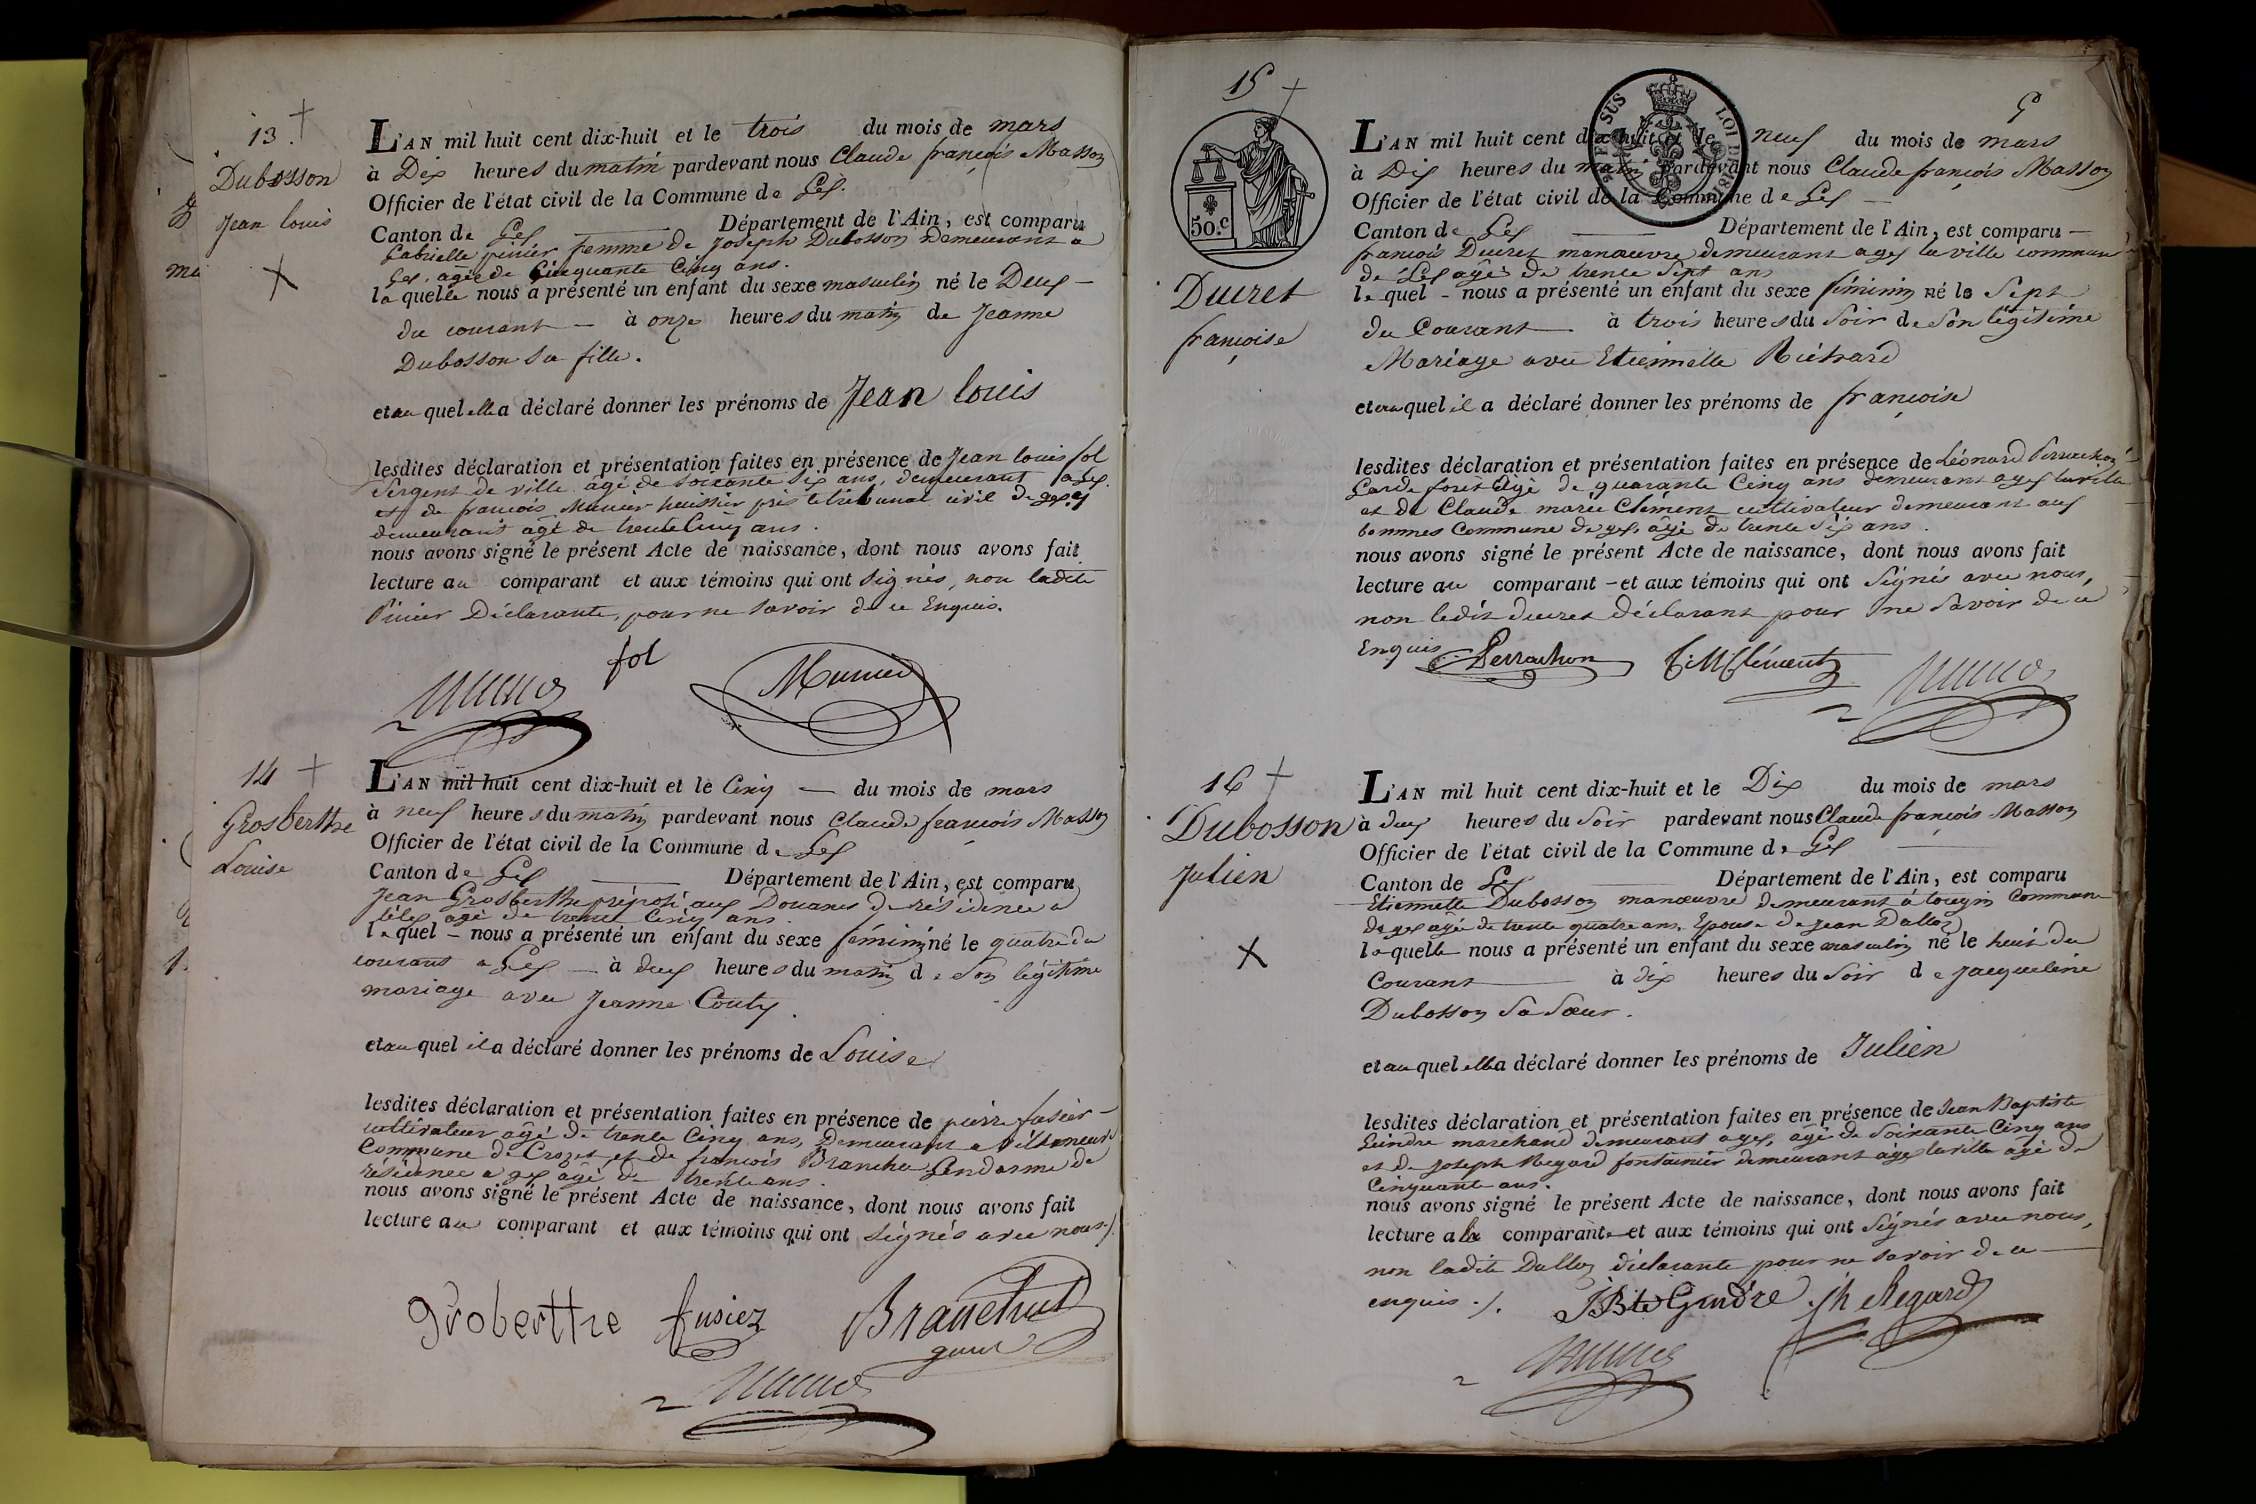 13
Dubosson
Jean louis
L'AN mil huit cent dix-huit et le trois du mois de mars
à Dix heures du matin pardevant nous Claude françois Masson
Officier de l'état civil de la Commune de Gex
Canton de Gex Département de l'Ain, est comparu
Gabrielle pinier femme de Joseph Dubosson demeurant a
Gex, agée de Cinquante Cinq ans.
laquelle nous a présenté un enfant du sexe masculin né le Deux
du courant à onze heures du matin de Jeanne
Dubosson sa fille.
et au quel elle a déclaré donner les prénoms de Jean louis
lesdites déclaration et présentation faites en présence de Jean louis fol
Sergent de ville âgé de soixante six ans, demeurant a Gex.
et de francois Munier huissier près le tribunal civil de gex y
demeurant âgé de trente Cinq ans.
nous avons signé le présent Acte de naissance, dont nous avons fait
lecture au comparant et aux témoins qui ont signés, non ladite
Pinier Déclarante, pour ne savoir de ce Enquis.
fol
Munier
14
Grosberthe
Louise
L'AN mil huit cent dix-huit et le Cinq du mois de mars
à neuf heures du matin pardevant nous Claude françois Masson
Officier de l'état civil de la Commune de Gex
Canton de Gex Département de l'Ain, est comparu
Jean Grosberthe préposé aux Douanes de résidence a
agé de trente Cinq ans.
lequel nous a présenté un enfant du sexe féminin né le quatre du
courant a Gex à deux heures du matin de son légitime
mariage avec Jeanne Couty.
et au quel il a déclaré donner les prénoms de Louise
lesdites déclaration et présentation faites en présence de pierre fusier
cultivateur âgé de trente Cinq ans, Demeurant a
Commune de Crozet et de francois Branchu Gendarme de
résidence a gex âgé de trente ans.
nous avons signé le présent Acte de naissance, dont nous avons fait
lecture au comparant et aux témoins qui ont signés avec nous
groberthe fusiez Branchu
15
50.c
Ducret
françoise
5
L'AN mil huit cent dix-huit et le neuf du mois de mars
à Dix heures du matin pardevant nous Claude françois Masson
Officier de l'état civil de la Commune de Gex
Canton de Gex Département de l'Ain, est comparu
françois Ducret manœuvre demeurant a gex la ville commune
de Gex agé de trente sept ans
lequel nous a présenté un enfant du sexe féminin né le Sept
du Courant à trois heures du Soir de Son légitime
Mariage avec Etiennette
et au quel il a déclaré donner les prénoms de françoise
lesdites déclaration et présentation faites en présence de Léonard Perrachon
Garde foret âgé de quarante Cinq ans demeurant a gex la ville
et de Claude marie Clément cultivateur demeurant aux
Commune de gex âgé de trente Six ans.
nous avons signé le présent Acte de naissance, dont nous avons fait
lecture au comparant et aux témoins qui ont Signés avec nous,
non ledit ducret Déclarant pour ne Savoir de ce
Enquis. Perrachon C:M Clément
16
Dubosson
Julien
L'AN mil huit cent dix-huit et le Dix du mois de mars
à deux heures du Soir pardevant nous Claude françois Masson
Officier de l'état civil de la Commune de Gex
Canton de Gex Département de l'Ain, est comparu
Etiennette Dubosson manœuvre demeurant à tougin Commune
de gex agée de trente quatre ans, Epouse de jean
laquelle nous a présenté un enfant du sexe masculin né le huit du
Courant à dix heures du Soir de Jacqueline
Dubosson Sa Sœur.
et au quel elle a déclaré donner les prénoms de Julien
lesdites déclaration et présentation faites en présence de Jean Baptiste
Geindre marchand demeurant a gex, âgé de Soixante Cinq ans
et de Joseph Regard fontainier demeurant a gex la ville âgé de
Cinquante ans.
nous avons signé le présent Acte de naissance, dont nous avons fait
lecture a la comparante et aux témoins qui ont Signés avec nous,
non ladite déclarante pour ne savoir de ce
enquis. JBte Gendre jh Regard